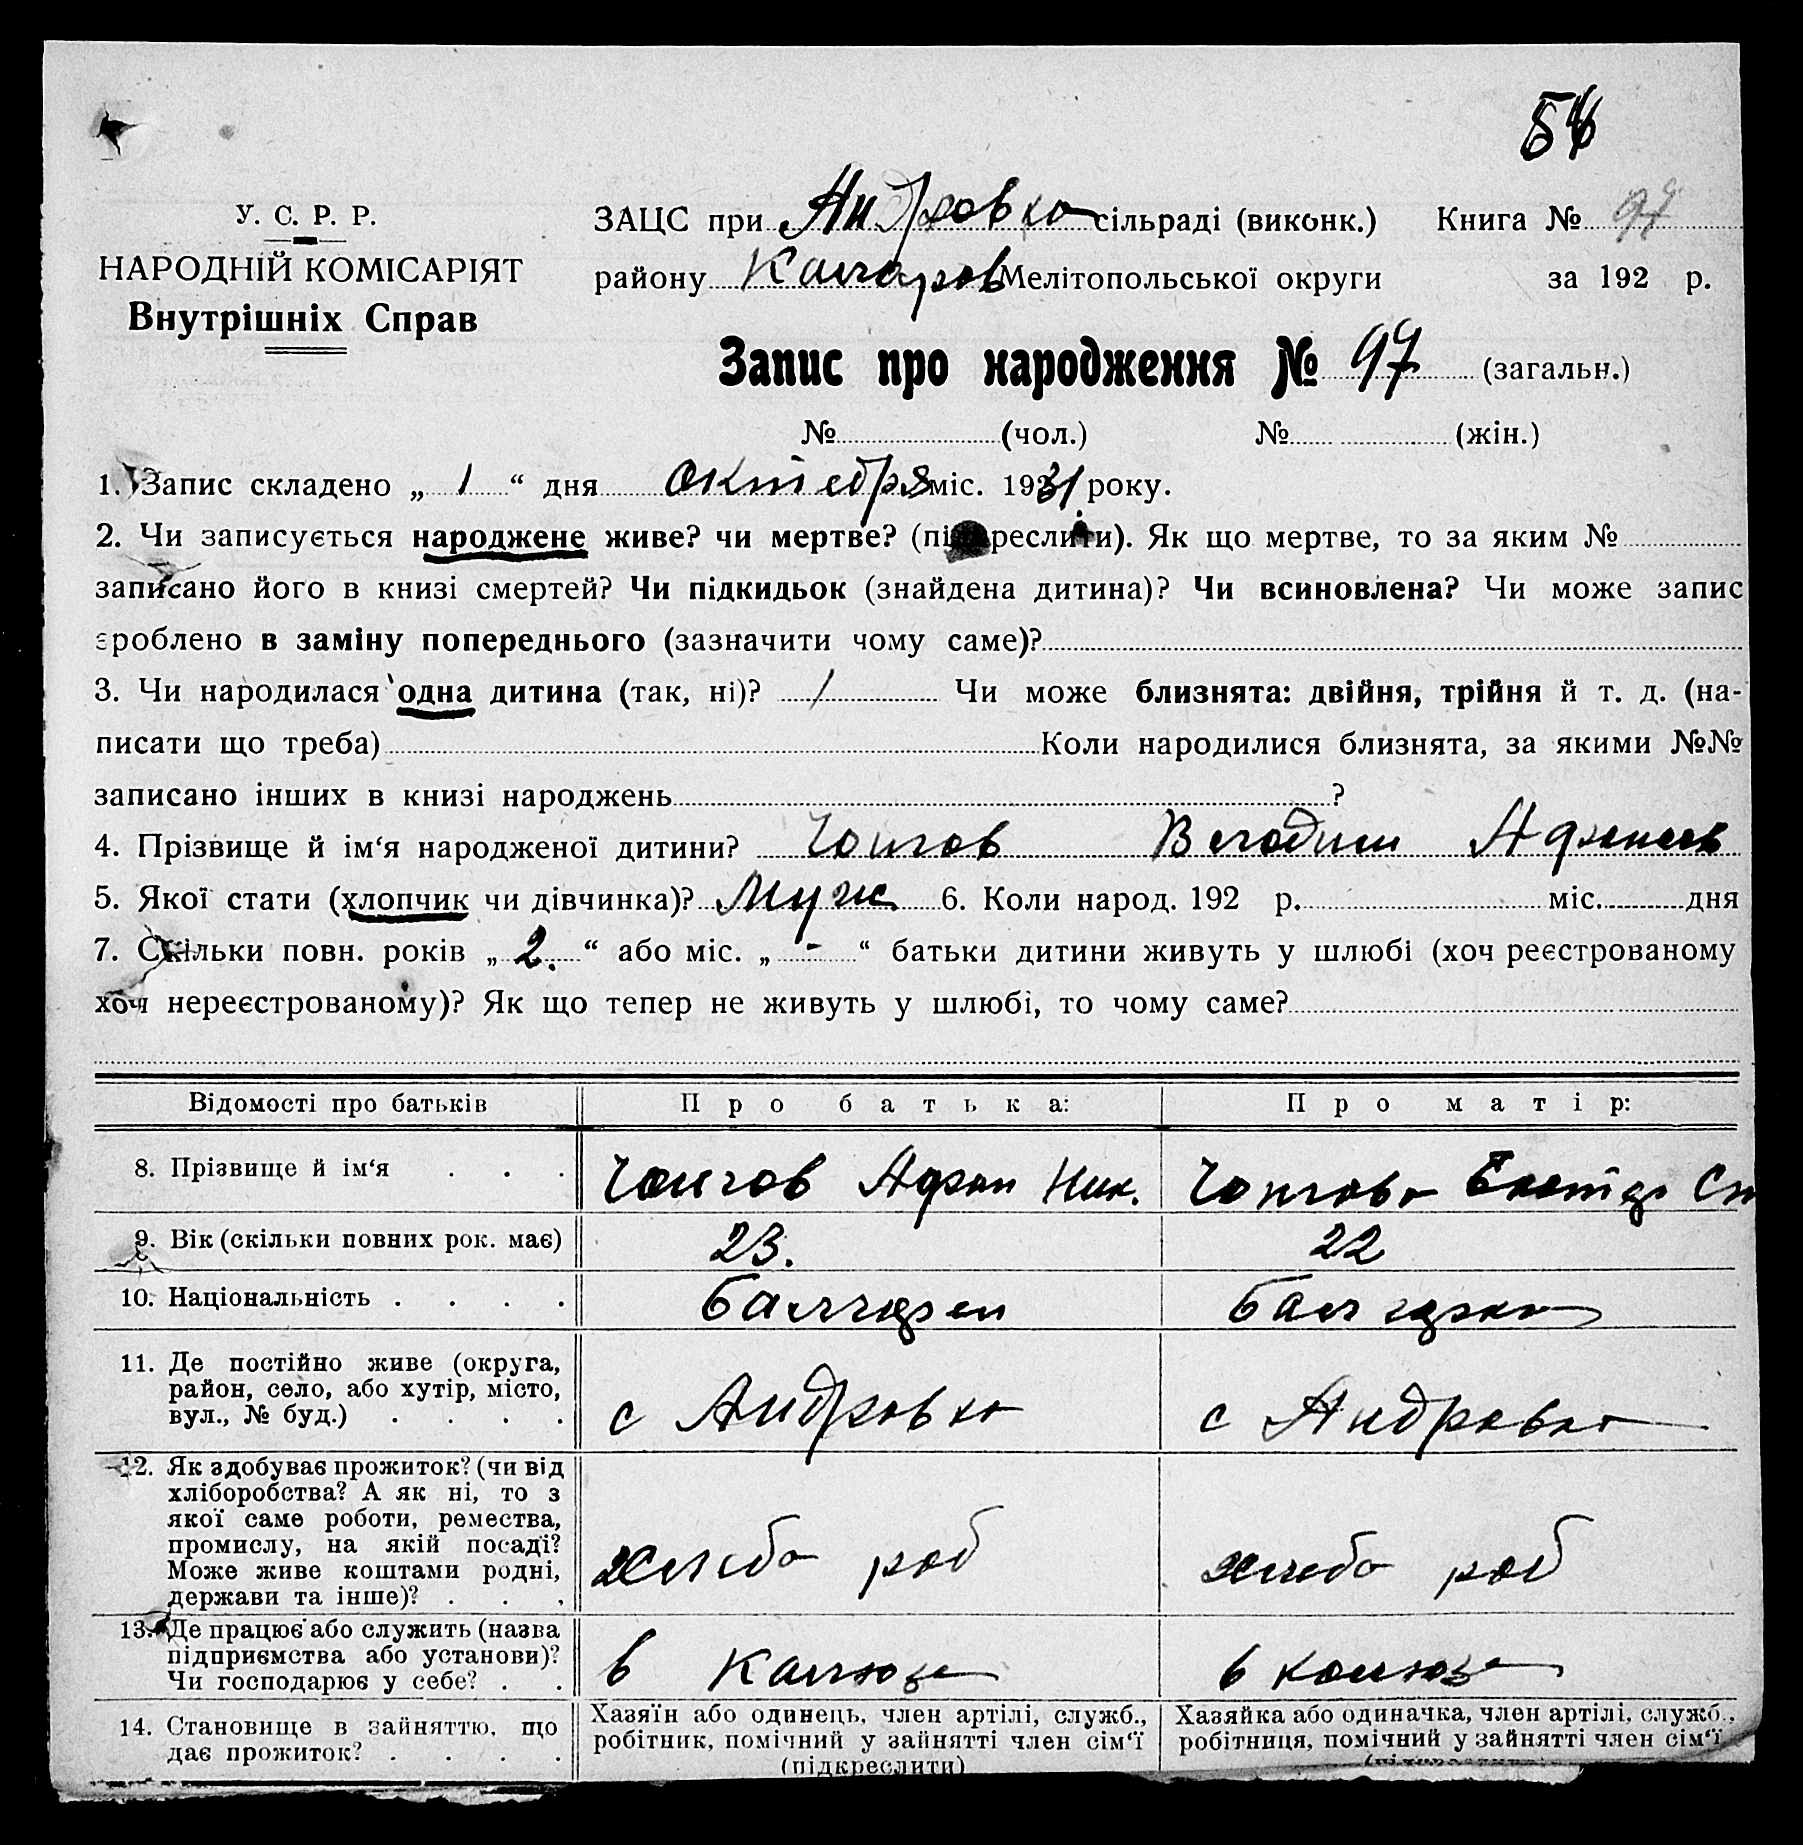 У. С. Р. Р.
НАРОДНІЙ КОМІСАРІЯТ
Внутрішніх Справ
ЗАЦС при Андровка сільраді (виконк.) Книга № 97
району Коларов Мелітопольської округи за 192 р.
Запис про народження № 97 (загальн.)
№ (чол.) № (жін.)
1. Запис складено „ 1 “ дня октебря міс. 1931 року.
2. Чи записується народжене живе? чи мертве? (підкреслити). Як що мертве, то за яким №
записано його в книзі смертей? Чи підкидьок (знайдена дитина)? Чи всиновлена? Чи може запис
зроблено в заміну попереднього (зазначити чому саме)?
3. Чи народилася одна дитина (так, ні)? 1 Чи може близнята: двійня, трійня й т. д. (на-
писати що треба) Коли народилися близнята, за якими №№
записано інших в книзі народжень ?
4. Прізвище й ім‘я народженої дитини? Владим
5. Якої стати (хлопчик чи дівчинка)? Муж 6. Коли народ. 192 р. міс. дня
7. Скільки повн. років „ 2. “ або міс. „ - “ батьки дитини живуть у шлюбі (хоч реєстрованому
хоч нереєстрованому)? Як що тепер не живуть у шлюбі, то чому саме?
Відомості про батьків Про батька: Про матір:
8. Прізвище й ім‘я . . . Афан Ник.
9. Вік (скільки повних рок. має) 23. 22
10. Національність . . . . болгарен болгарка
11. Де постійно живе (округа,
район, село, або хутір, місто,
вул., № буд.) . . . . с Андровка с Андровка
12. Як здобуває прожиток? (чи від
хліборобства? А як ні, то з
якої саме роботи, ремества,
промислу, на якій посаді?
Може живе коштами родні,
держави та інше)? . . . хлебо роб хлебо роб
13. Де працює або служить (назва
підприємства або установи)?
Чи господарює у себе? . . в колхозе в колхозе
14. Становище в зайняттю, що
дає прожиток? . . . .
Хазяїн або одинець, член артілі, служб.,
робітник, помічний у зайнятті член сім‘ї
(підкреслити)
Хазяйка або одиначка, член артілі, служб.,
робітниця, помічний у зайнятті член сім‘ї